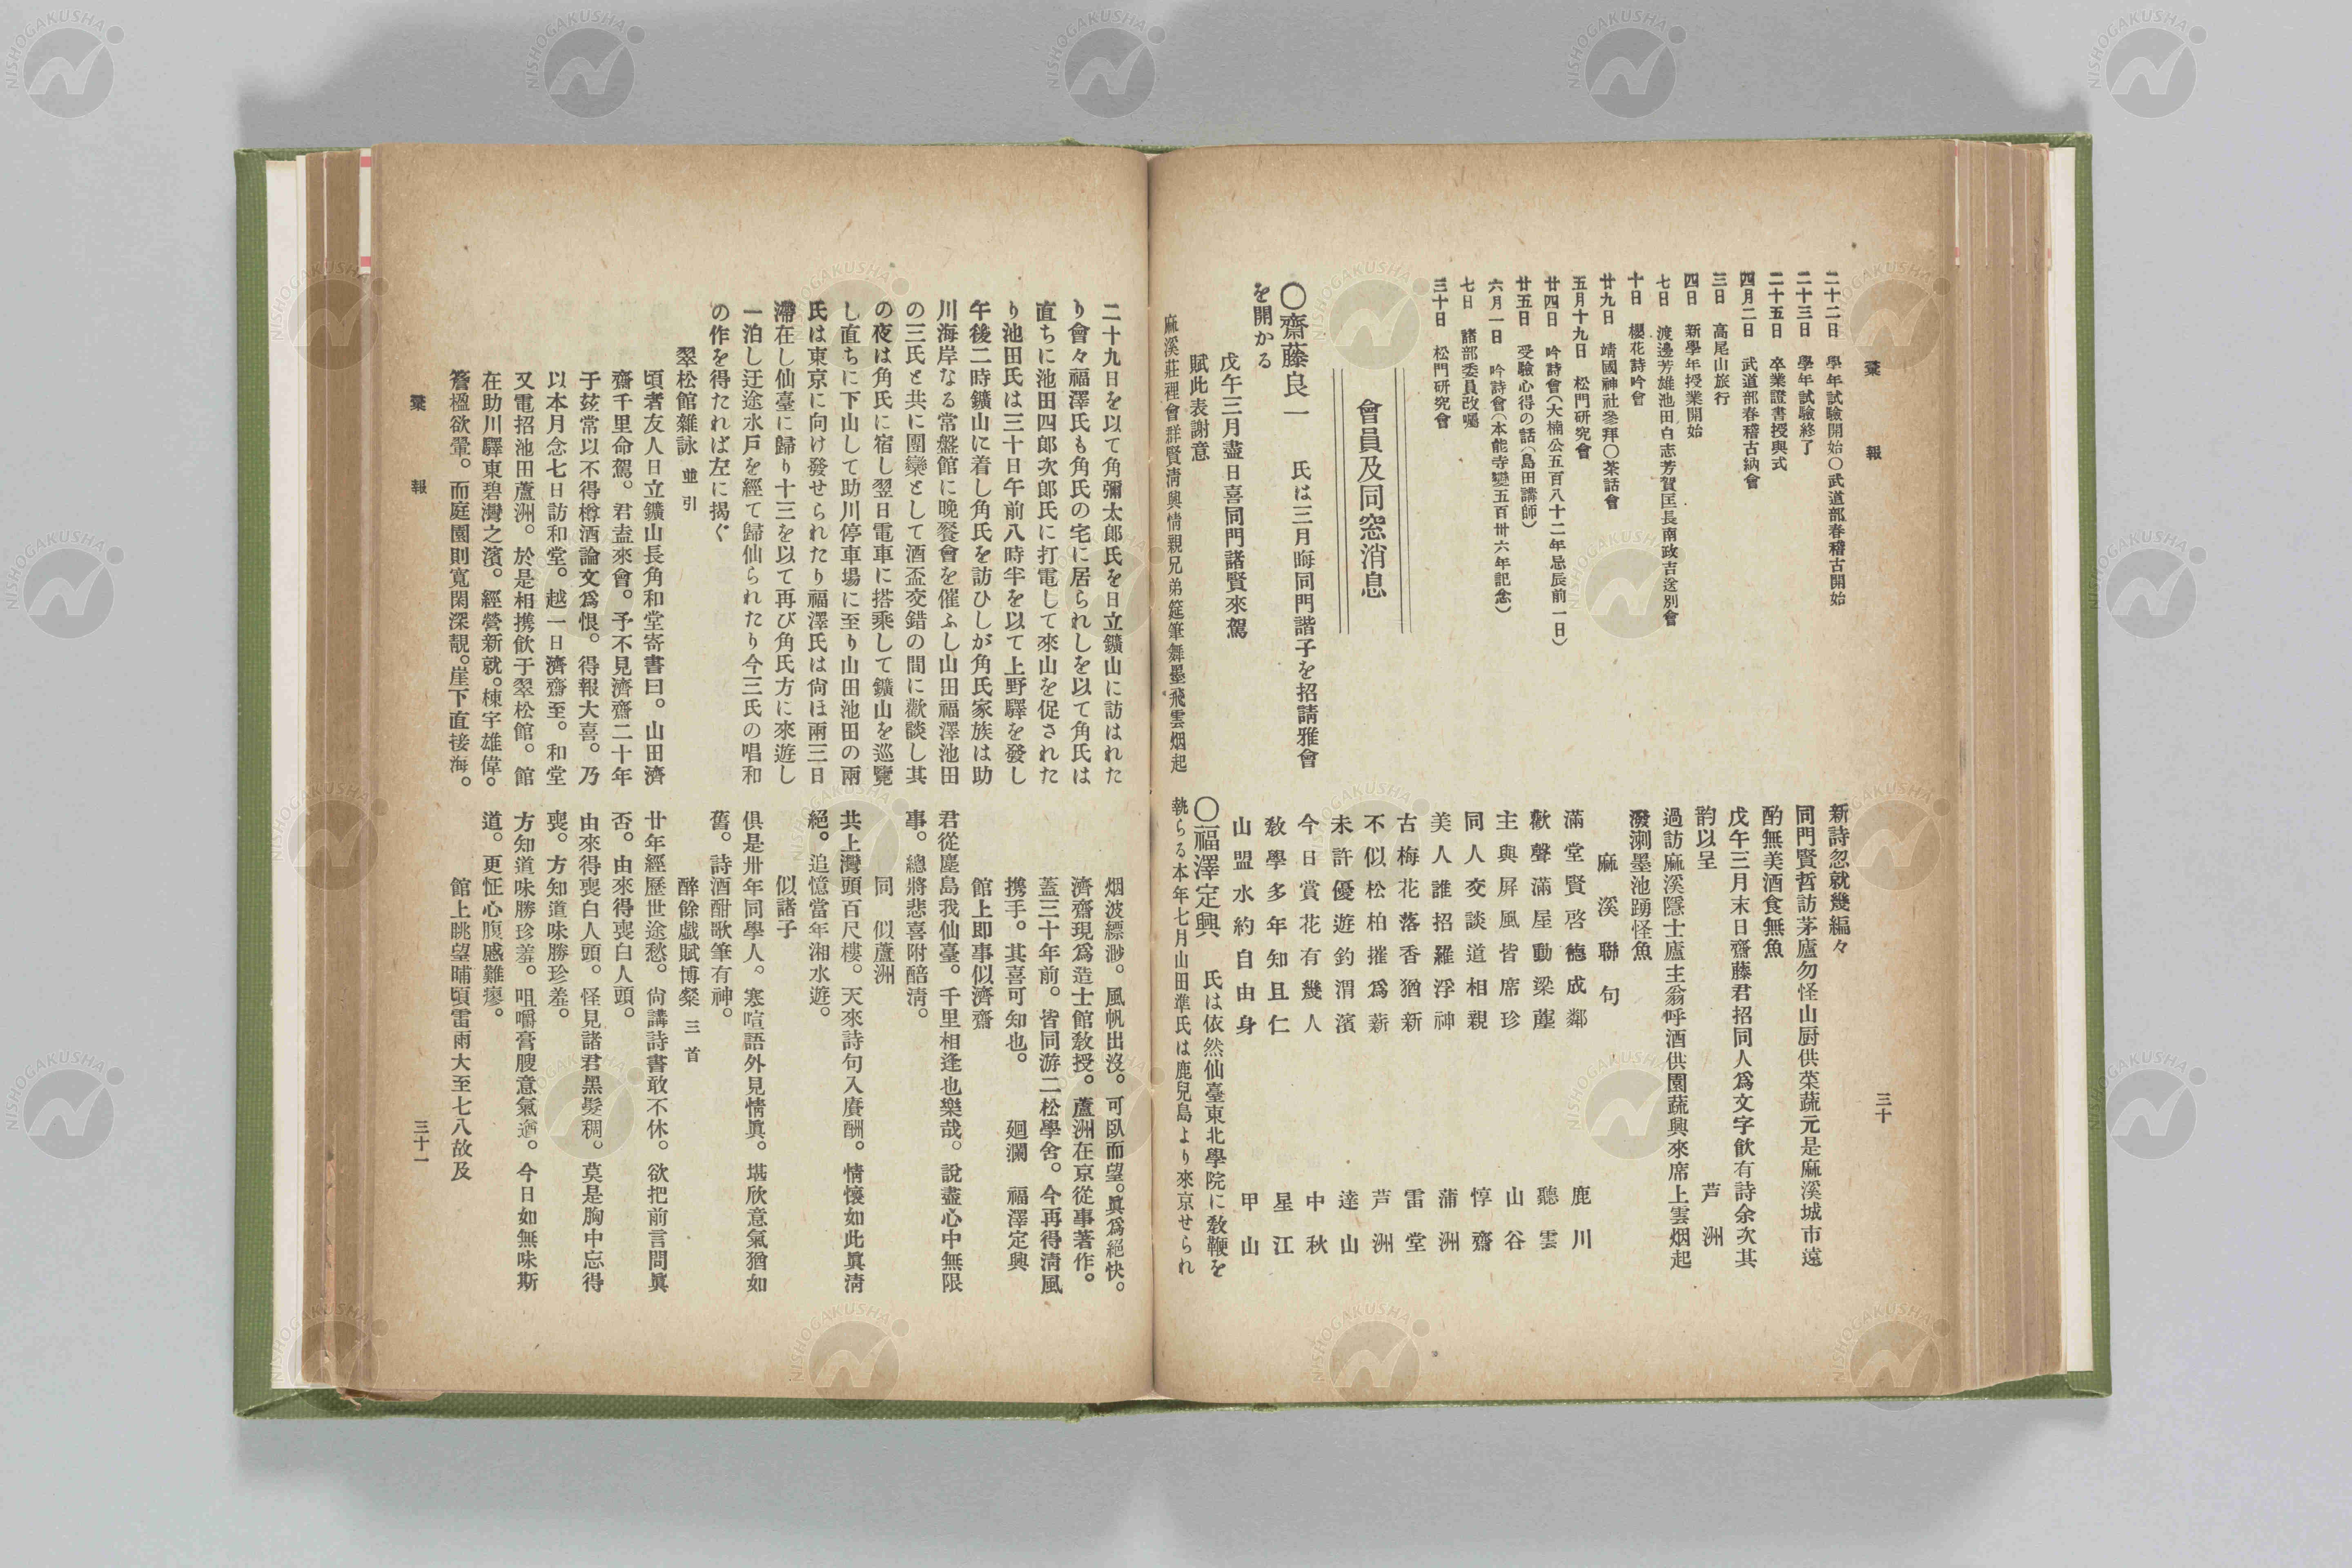 彙報
三十
二十二日 學年試驗開始〇武道部春稽古開始
二十三日 學年試驗終了
二十五日 卒業證書授與式
四月二日 武道部春稽古納會
三日 高尾山旅行
四日 新學年授業開始
七日 渡邊芳雄池田白志芳賀匡長南政吉送別會
十日 櫻花詩吟會
廿九日 靖國神社參拜〇茶話會
五月十九日 松門研究會
廿四日 吟詩會(大楠公五百八十二年忌辰前一日)
廿五日 受驗心得の話(島田講師)
六月一日 吟詩會(本能寺變五百卅六年記念)
七日 諸部委員改囑
三十日 松門研究會
會員及同窓消息
〇齋藤良一 氏は三月晦同門諧子を招請雅會
を開かる
戊午三月盡日喜同門諸賢來駕
賦此表謝意
麻溪莊裡會群賢淸興情親兄弟筵筆舞墨飛雲烟起
新詩忽就幾編々
同門賢哲訪茅廬勿怪山厨供菜蔬元是麻溪城市遠
酌無美酒食無魚
戊午三月末日齋藤君招同人爲文字飮有詩余次其
韵以呈 芦洲
過訪麻溪隱士廬主翁呼酒供園蔬興來席上雲烟起
潑溂墨池踊怪魚
麻溪聯句
滿堂賢啓德成鄰 鹿川
歡聲滿屋動梁塵 聽雲
主與屏風皆席珍 山谷
同人交談道相親 惇齋
美人誰招羅浮神 蒲洲
古梅花落香猶新 雷堂
不似松柏摧爲薪 芦洲
未許優遊釣渭濱 達山
今日賞花有幾人 中秋
敎學多年知且仁 星江
山盟水約自由身 甲山
〇福澤定興 氏は依然仙臺東北學院に敎鞭を
執らる本年七月山田準氏は鹿兒島より來京せられ
二十九日を以て角彌太郎氏を日立鑛山に訪はれた
り會々福澤氏も角氏の宅に居られしを以て角氏は
直ちに池田四郎次郎氏に打電して來山を促された
り池田氏は三十日午前八時半を以て上野驛を發し
午後二時鑛山に着し角氏を訪ひしが角氏家族は助
川海岸なる常盤館に晚餐會を催ふし山田福澤池田
の三氏と共に團欒として酒盃交錯の間に歡談し其
の夜は角氏に宿し翌日電車に搭乘して鑛山を巡覽
し直ちに下山して助川停車場に至り山田池田の兩
氏は東京に向け發せられたり福澤氏は尙ほ兩三日
滯在し仙臺に歸り十三を以て再び角氏方に來遊し
一泊し迂途水戶を經て歸仙られたり今三氏の唱和
の作を得たれば左に揭ぐ
翠松館雜詠 並引
頃者友人日立鑛山長角和堂寄書曰。山田濟
齋千里命駕。君盍來會。予不見濟齋二十年
于玆常以不得樽酒論文爲恨。得報大喜。乃
以本月念七日訪和堂。越一日濟齋至。和堂
又電招池田蘆洲。於是相携飮于翠松館。館
在助川驛東碧灣之濱。經營新就。棟宇雄偉。
簷楹欲翬。而庭園則寬閑深靚。崖下直接海。
烟波縹渺。風帆出沒。可臥而望。眞爲絕快。
濟齋現爲造士館敎授。蘆洲在京從事著作。
蓋三十年前。皆同游二松學舍。今再得淸風
携手。其喜可知也。 廻瀾 福澤定興
館上即事似濟齋
君從麑島我仙臺。千里相逢也樂哉。說盡心中無限
事。總將悲喜附醅淸。
同 似蘆洲
共上灣頭百尺樓。天來詩句入賡酬。情懷如此眞淸
絕。追憶當年湘水遊。
似諸子
俱是卅年同學人。寒喧語外見情眞。堪欣意氣猶如
舊。詩酒酣歌筆有神。
醉餘戲賦博粲 三首
廿年經歷世途愁。尙講詩書敢不休。欲把前言問眞
否。由來得喪白人頭。
由來得喪白人頭。怪見諸君黑髮稠。莫是胸中忘得
喪。方知道味勝珍羞。
方知道味勝珍羞。咀嚼膏腴意氣遒。今日如無味斯
道。更怔心腹慼難瘳。
館上眺望晡頃雷雨大至七八故及
彙報
三十一